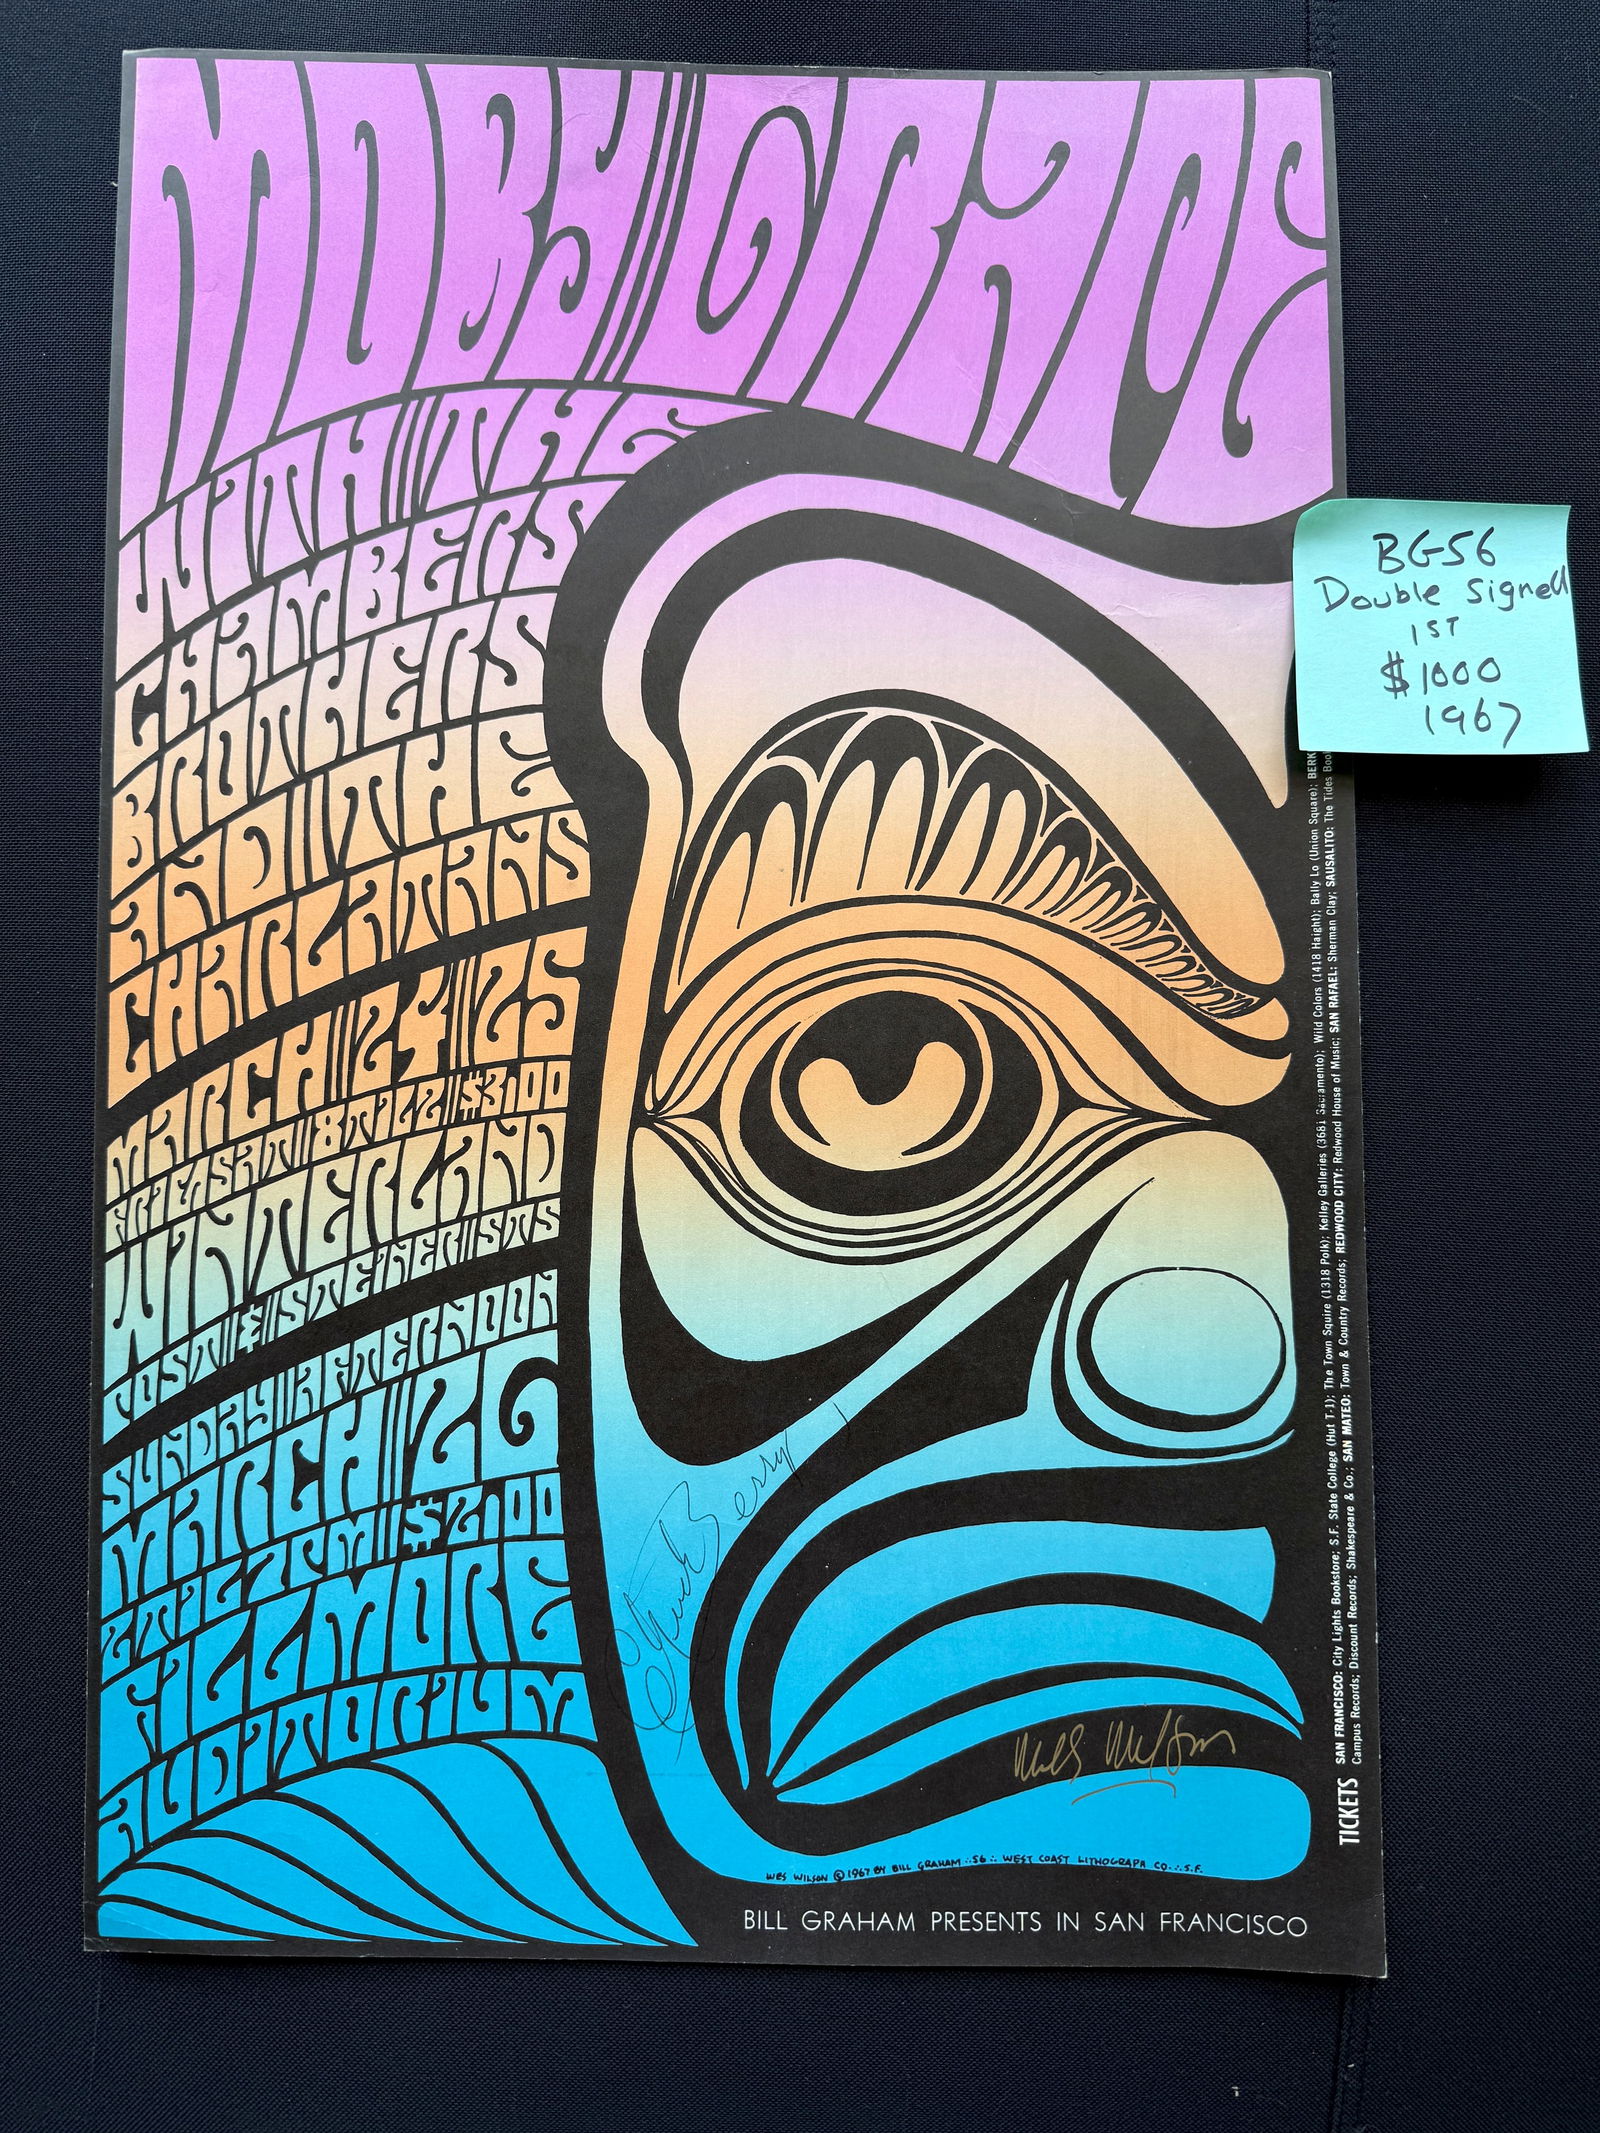 MOBY GRAPE
WITH THE
CHAMBERS
BROTHERS
AND THE
CHARLATANS
MARCH 24 25
FRI & SAT 8 TIL 2 $3.00
WINTERLAND
POST & STEINER STS
SUNDAY AFTERNOON
MARCH 26
2 TIL 7 PM $2.00
FILLMORE
AUDITORIUM
BG-56
Double Signed
1ST
$1000
1967
Chuck Berry
Wes Wilson
WES WILSON © 1967 BY BILL GRAHAM ∴56∴ WEST COAST LITHOGRAPH CO.∴S.F.
BILL GRAHAM PRESENTS IN SAN FRANCISCO
TICKETS
SAN FRANCISCO: City Lights Bookstore; S.F. State College (Hut T-1); The Town Squire (1318 Polk); Kelley Galleries (3681 Sacramento); Wild Colors (1418 Haight); Bally Lo (Union Square); BERK
Campus Records; Discount Records; Shakespeare & Co.; SAN MATEO: Town & Country Records; REDWOOD CITY: Redwood House of Music; SAN RAFAEL: Sherman Clay; SAUSALITO: The Tides Boo